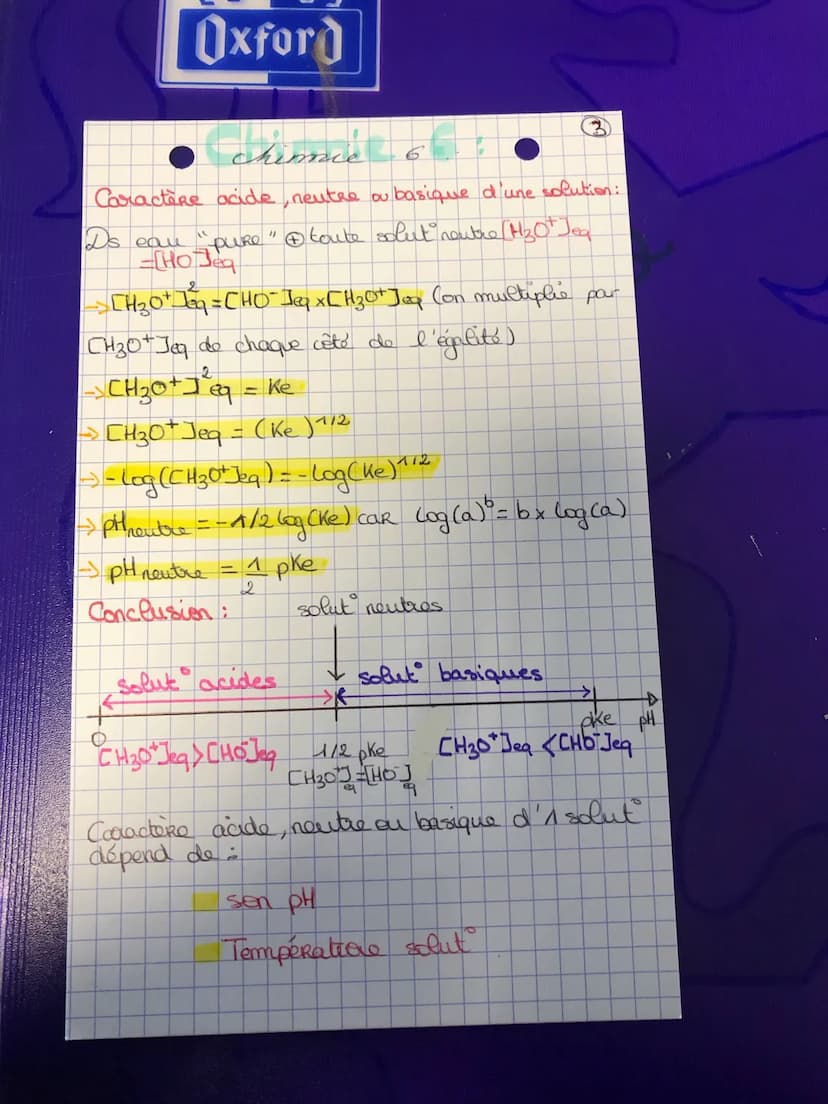 Oxford
3
Chimie 6 :
chimie 6
Caractère acide, neutre ou basique d'une solution:
Ds eau "pure" ⊕ toute solut° neutre [H3O+]eq
=[HO-]eq
→ [H3O+]²eq = [HO-]eq x [H3O+]eq (on multiplie par
[H3O+]eq de chaque côté de l'égalité)
→ [H3O+]²eq = Ke
→ [H3O+]eq = (Ke)^1/2
→ -log([H3O+]eq) = -log(Ke)^1/2
→ pHneutre = -1/2 log(Ke) car log(a)^b = b x log(a)
→ pHneutre = 1/2 pKe
Conclusion : solut° neutres
solut° acides solut° basiques
0 pKe pH
[H3O+]eq > [HO-]eq 1/2 pKe [H3O+]eq < [HO-]eq
[H3O+]eq = [HO-]eq
Caractère acide, neutre ou basique d'1 solut°
dépend de :
son pH
Température solut°